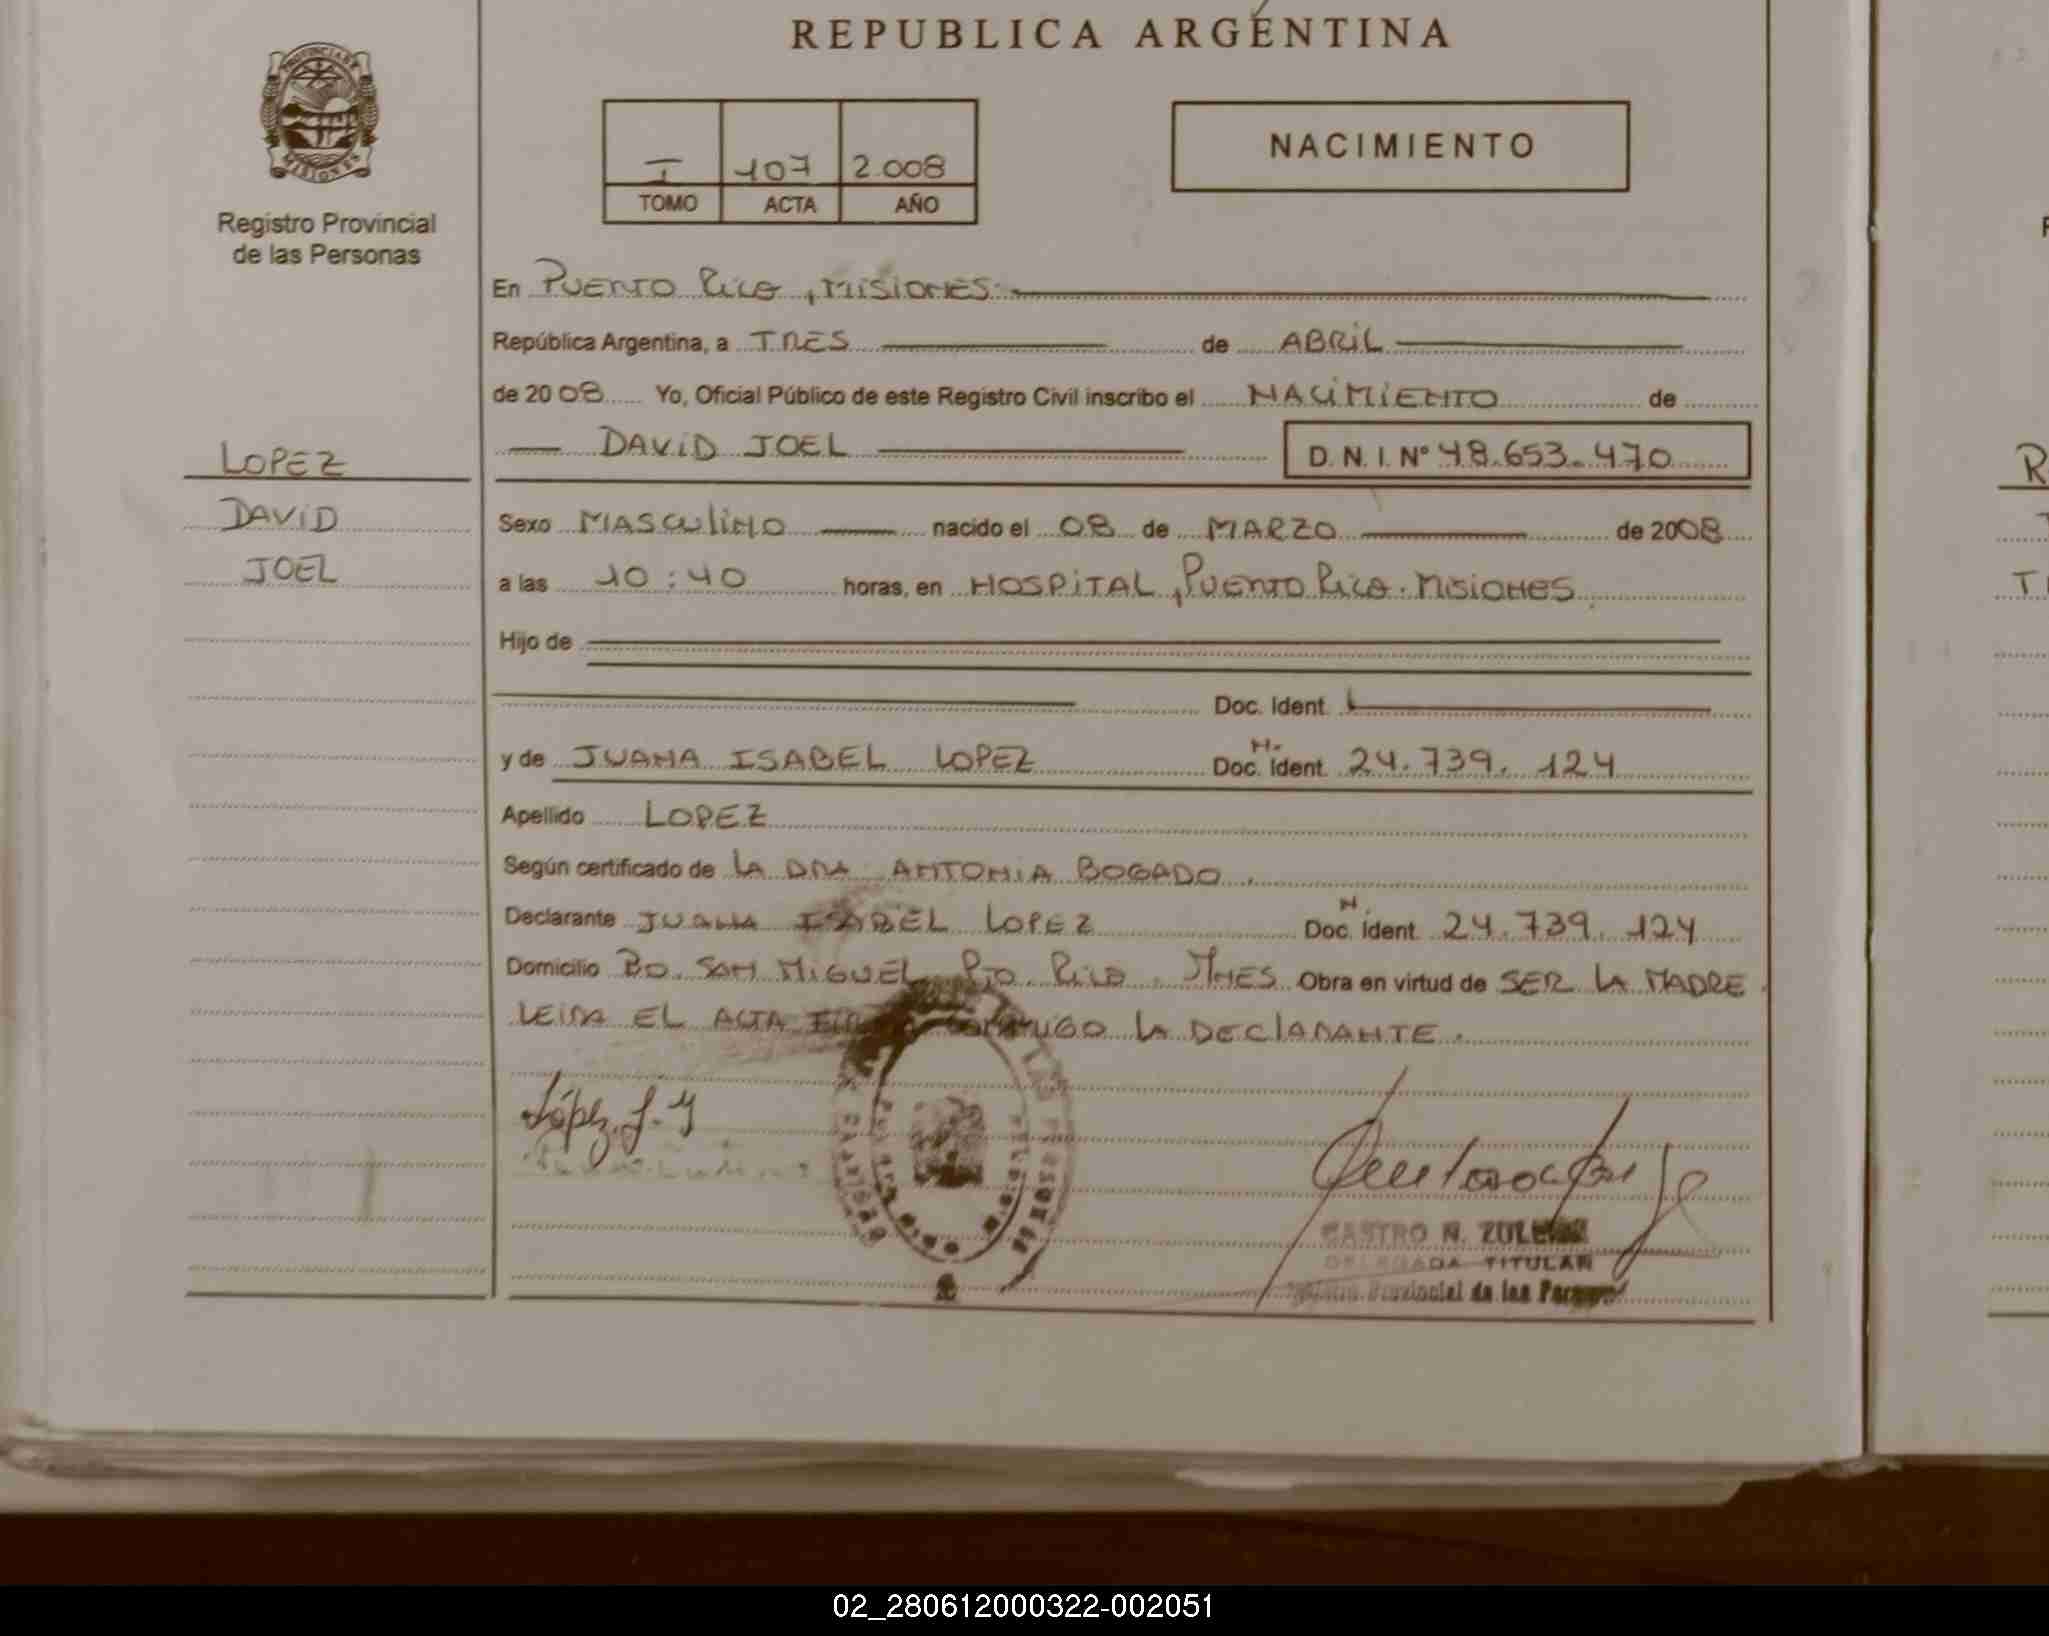 REPUBLICA ARGENTINA
PROVINCIA DE MISIONES
Registro Provincial
de las Personas
I 107 2.008
TOMO ACTA AÑO
NACIMIENTO
En PUERTO RICO, MISIONES.
República Argentina, a TRES de ABRIL
de 2008 Yo, Oficial Público de este Registro Civil inscribo el NACIMIENTO de
DAVID JOEL D. N. I. Nº 48.653.470
LOPEZ
DAVID
JOEL
Sexo MASCULINO nacido el 08 de MARZO de 2008
a las 10:40 horas, en HOSPITAL, PUERTO RICO. MISIONES.
Hijo de
Doc. Ident.
y de JUANA ISABEL LOPEZ Doc. Ident. 24.739.124
Apellido LOPEZ
Según certificado de LA DRA ANTONIA BOGADO.
Declarante JUANA ISABEL LOPEZ Doc. ident. 24.739.124
Domicilio Bo. SAN MIGUEL Pto. RICO. Mnes Obra en virtud de SER LA MADRE.
LEIDA EL ACTA LA DECLARANTE.
López. J. Y
CASTRO N.
DELEGADA TITULAR
Provincial de las
R
02_280612000322-002051